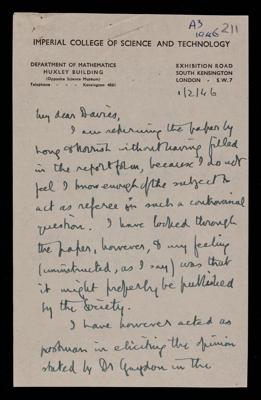 A3
1946
211
IMPERIAL COLLEGE OF SCIENCE AND TECHNOLOGY
DEPARTMENT OF MATHEMATICS
HUXLEY BUILDING
(Opposite Science Museum)
Telephone - - - Kensington 4861
EXHIBITION ROAD
SOUTH KENSINGTON
LONDON - S.W.7
1/2/46
My dear Davies,
I am returning the paper by
Long & Norrish without having filled
in the report form, because I do not
feel I know enough of the subject to
act as referee in such a controversial
question. I have looked through
the paper, however, & my feeling
(uninstructed, as I say) was that
it might properly be published
by the Society.
I have however acted as
postman in eliciting the opinion
stated by Dr Gaydon in the